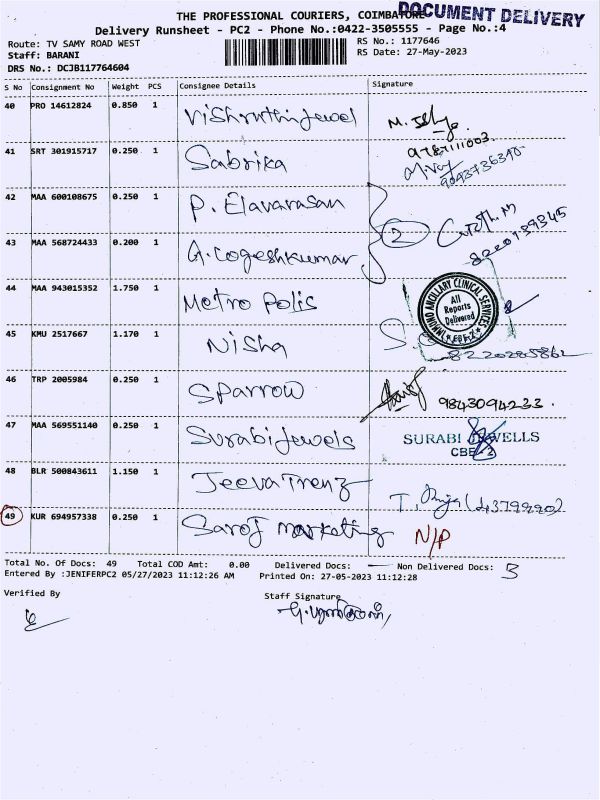 THE PROFESSIONAL COURIERS, COIMBATORE
DOCUMENT DELIVERY
Delivery Runsheet - PC2 - Phone No.:0422-3505555 - Page No.:4
Route: TV SAMY ROAD WEST
RS No.: 1177646
Staff: BARANI
RS Date: 27-May-2023
DRS No.: DCJB117764604
S No Consignment No Weight PCS Consignee Details Signature
40 PRO 14612824 0.850 1 Vishruthi Jewel
41 SRT 301915717 0.250 1 Sabrika
9787111003
9043736390
42 MAA 600108675 0.250 1 P. Elavarasan
43 MAA 568724433 0.200 1 G. Logeshkumar
2
8220139345
44 MAA 943015352 1.750 1 Metro Polis
IMMUNO ANCILLARY CLINICAL SERVICES
All
Reports
Delivered
45 KMU 2517667 1.170 1 Nisha
8220285862
46 TRP 2005984 0.250 1 Sparrow
9843094233.
47 MAA 569551140 0.250 1 Surabi Jewels
SURABI JEWELLS
CBE-2
48 BLR 500843611 1.150 1 Jeeva Trenz
49 KUR 694957338 0.250 1 Saroj marketing N/P
Total No. Of Docs: 49 Total COD Amt: 0.00 Delivered Docs: — Non Delivered Docs: 3
Entered By :JENIFERPC2 05/27/2023 11:12:26 AM Printed On: 27-05-2023 11:12:28
Verified By
Staff Signature